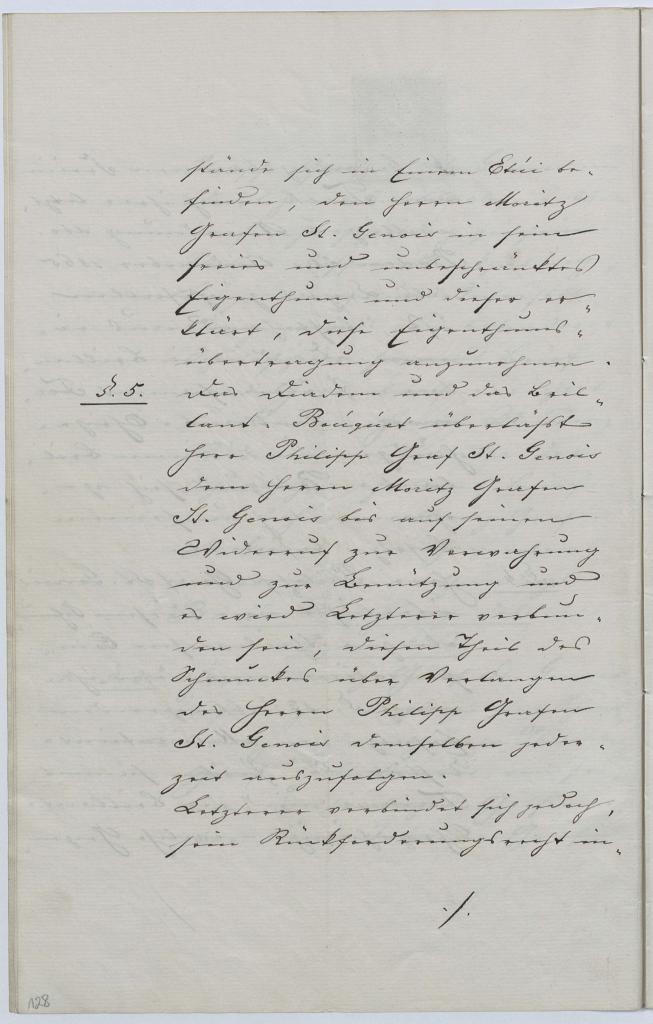 stände sich in Einem Etúi be-
finden, den Herrn Moritz
Grafen St. Genois in sein
freies und unbeschränktes
Eigenthum und dieser er-
klärt, diese Eigenthums-
übertragung anzunehmen.
§. 5. Das Diadem und das Bril-
lant-Bouquet überläßt
Herr Philipp Graf St. Genois
dem Herrn Moritz Grafen
St. Genois bis auf seinen
Widerruf zur Verwahrung
und zur Benützung und
es wird Letzterer verbun-
den sein, diesen Theil des
Schmuckes über Verlangen
des Herrn Philipp Grafen
St. Genois demselben jeder-
zeit auszufolgen.
Letzterer verbindet sich jedoch,
sein Rückforderungsrecht in-
./.
128